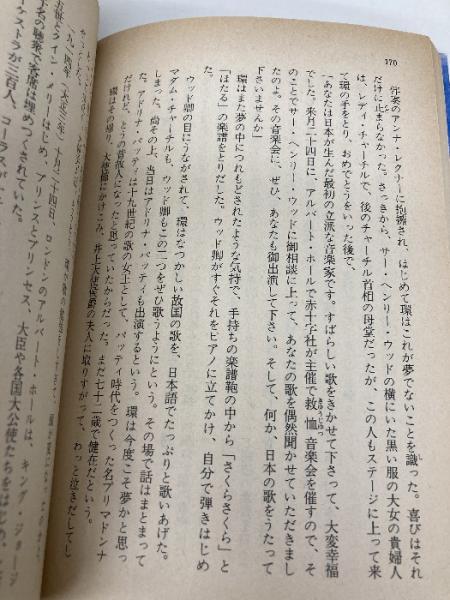 170
弾奏のアンナ・レクナーに抱擁され、はじめて環はこれが夢でないことを識った。喜びはそれ
だけに止まらなかった。さっきから、サー・ヘンリー・ウッドの横にいた黒い服の大女の貴婦人
は、レディ・チャーチルで、後のチャーチル首相の母堂だったが、この人もステージに上って来
て環の手をとり、おめでとうをいった後で、
「あなたは日本が生んだ最初の立派な音楽家です。すばらしい歌をきかせて下さって、大変幸福
でした。来月二十四日に、アルバート・ホールで赤十字社が主催で救恤音楽会を催すので、そ
のことでサー・ヘンリー・ウッドに御相談に上って、あなたの歌を偶然聞かせていただきまし
たのよ。その音楽会に、ぜひ、あなたも御出演して下さい。そして、何か、日本の歌をうたって
下さいませんか」
環はまた夢の中につれもどされたような気持で、手持ちの楽譜鞄の中から「さくらさくら」と
「ほたる」の楽譜をとりだした。ウッド卿がすぐそれをピアノに立てかけ、自分で弾きはじめ
た。
ウッド卿の目にうながされて、環はなつかしい故国の歌を、日本語でたっぷりと歌いあげた。
マダム・チャーチルも、ウッド卿もこの二つをぜひ歌うようにという。その場で話はまとまって
しまった。尚その上、当日はアドリナ・パッティも出演するという。環は今度こそ夢かと思っ
た。アドリナ・パッティは十九世紀の歌の女王として、パッティ時代をつくった名プリマドンナ
だけれど、とうの昔故人になったと思っていたからだった。まだ七十二歳で健在だという。
環はその帰り、大使館にかけこみ、井上大使侯爵の夫人に取りすがって、わっと泣きだしてし
一九一四年（大正三年）
二十四日、ロンドンのアルバート・ホールは、キング・ジョージ
五世とクイン・メリーをはじめ、プリンスとプリンセス、大臣や各国大公使たちをはじめ
の聴衆で客席は埋めつくされていた。
ーケストラが三百人、コーラスが